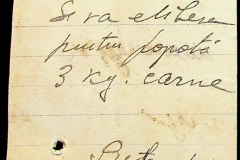 Se va elibera
pentru popotă
3 kg. carne